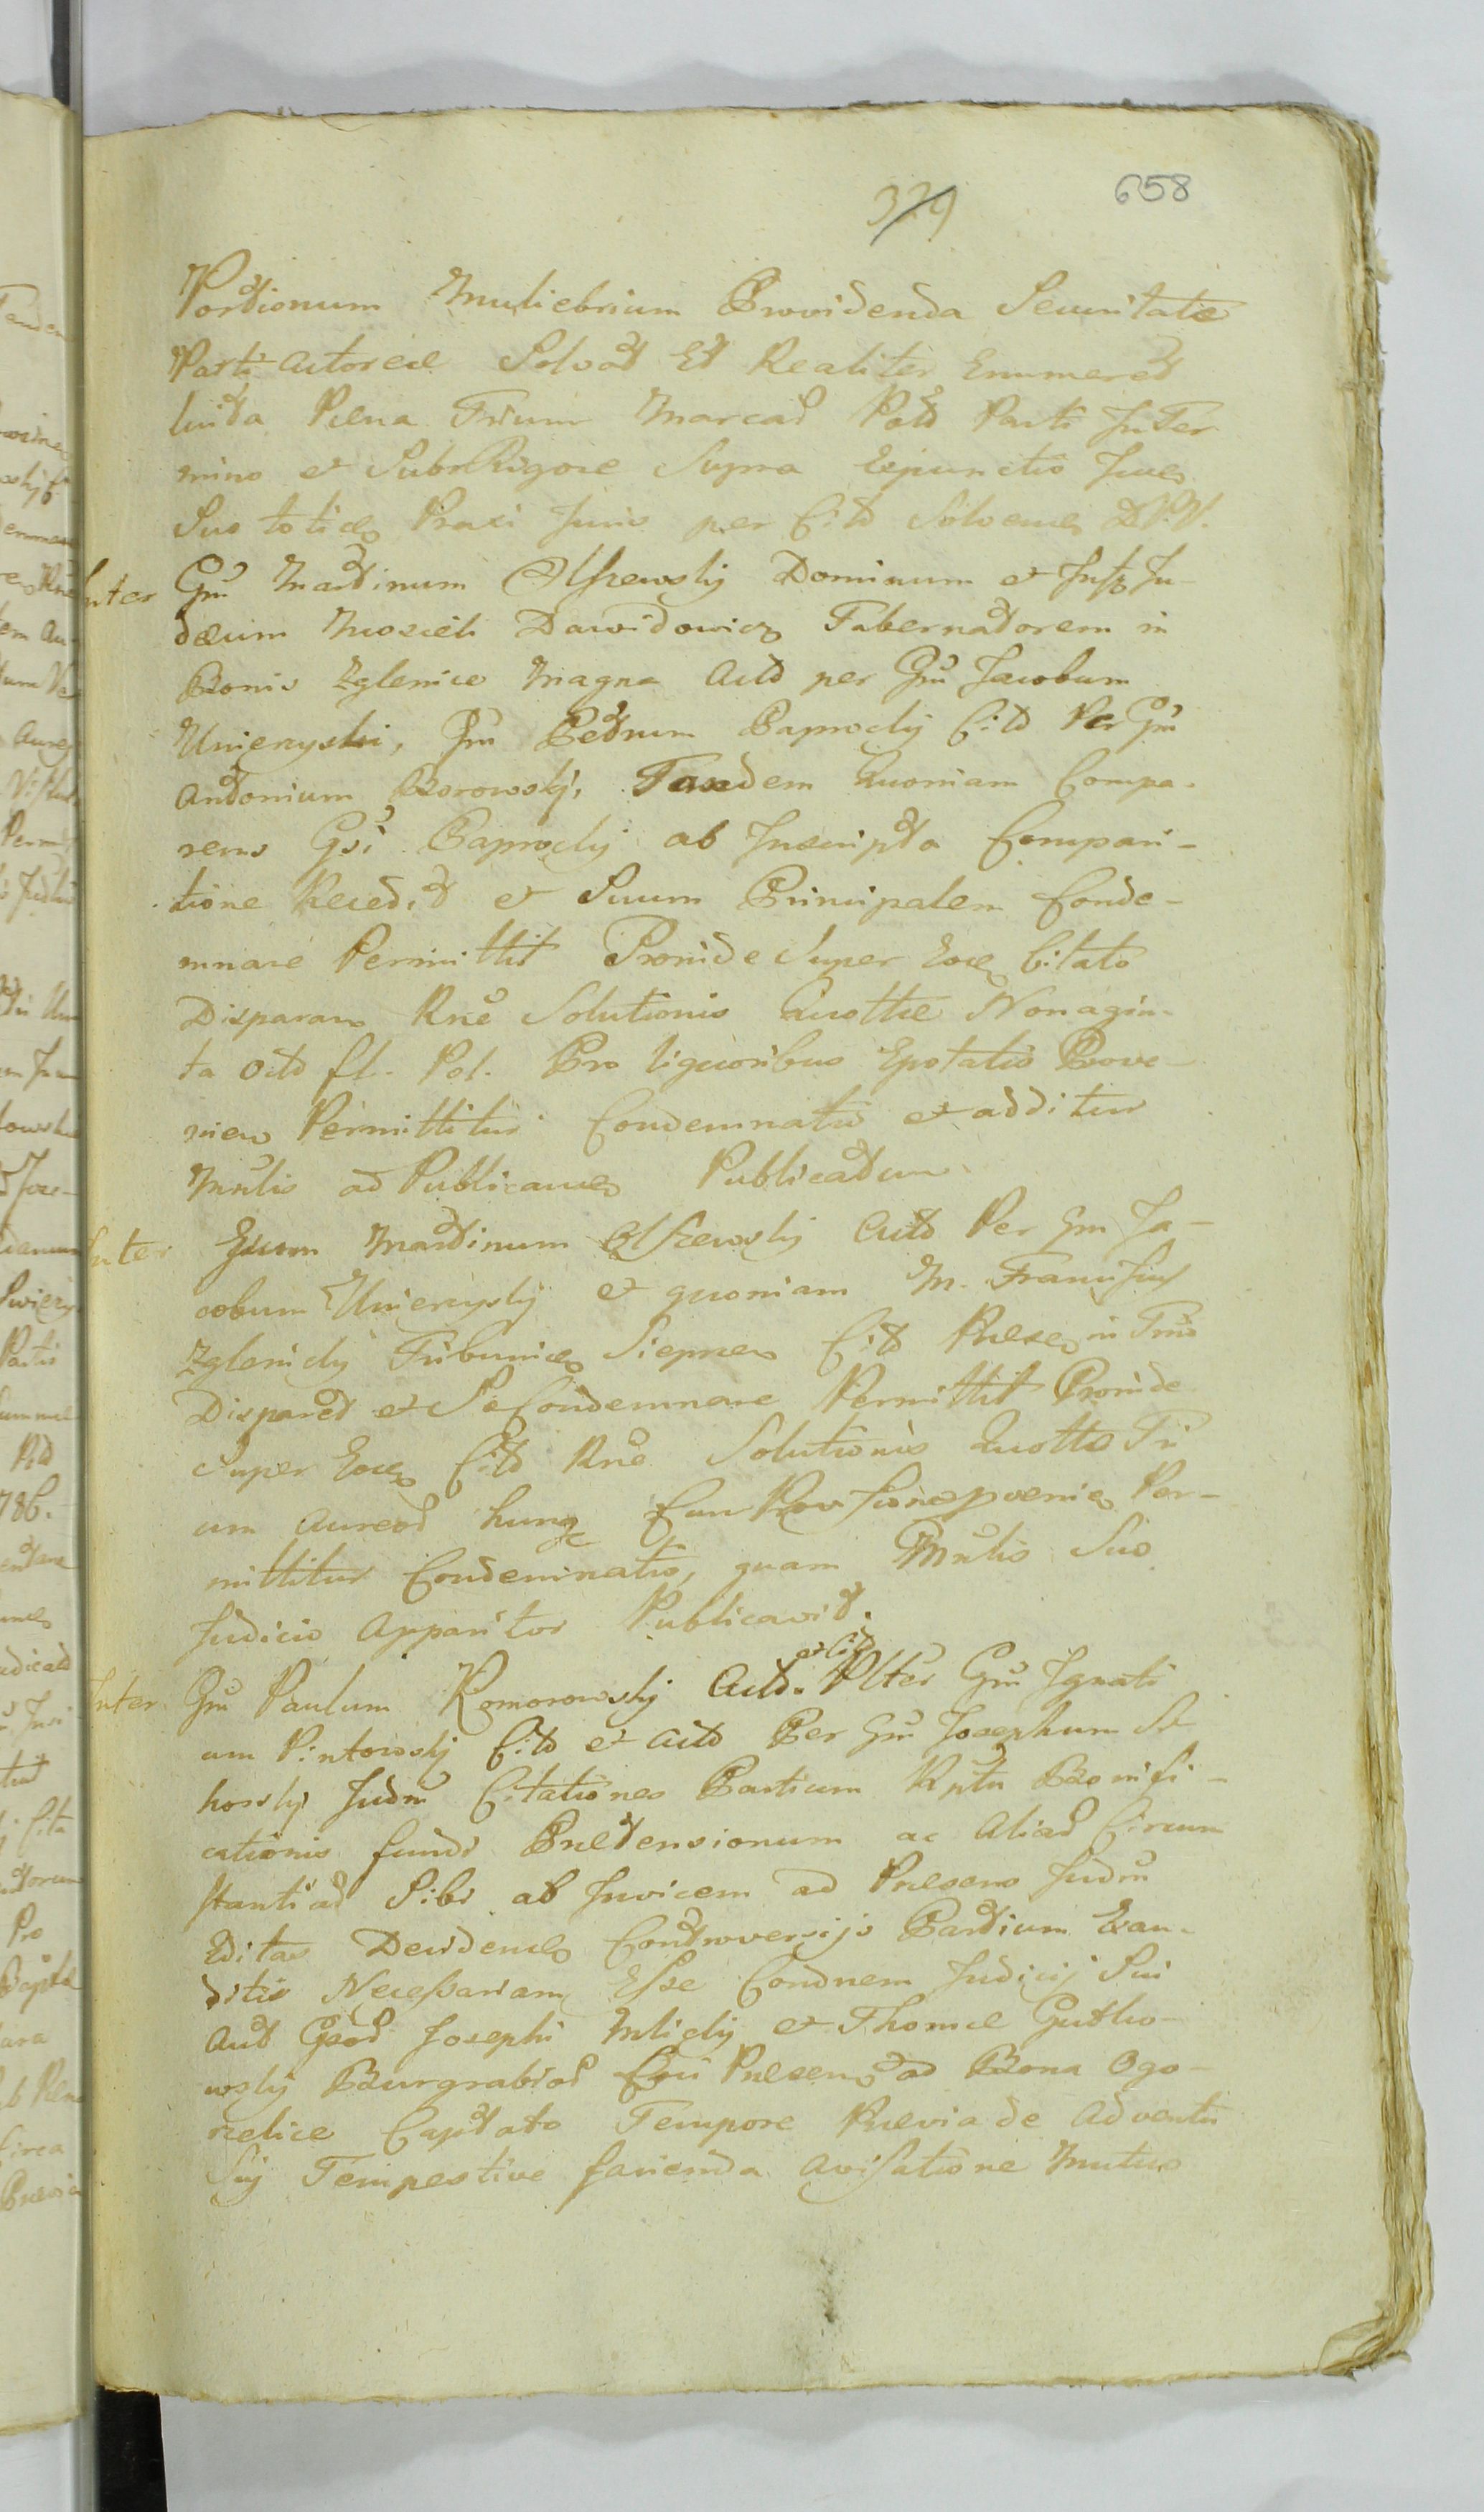 329 658
Portionum Muliebrium Providenda Securitate
Parti Actoreæ Solvat Et Realiter Enumeret
luita Pœna Trium Marcar Parti In Ter
mino et Sub Rigore Supra Expunctis
Suo toties Praxi Juris per Citt Solvend D.P.V.
Inter Gm Martinum Olszewsky Dominum et Ju-
dæum Moszek Dawidowicz Tabernatorem in
Bonis Zglenice Magna Actt per Gm Jacobum
Unierzyski, Gm Petrum Paprocky Citt Per Gm
Antonium Borowsky, Tandem Quoniam Compa-
rens Gsi Paprocky ab Inscripta Compari-
tione Recedit et Suum Principalem Conde-
mnare Permittit Proinde Super Citato
Disparan Rne Solutionis Quottæ Nonagin-
ta Octo fl. Pol. Pro liquoribus Epotatis Prove-
nien Permittitur Condemnatio et additur
ad Publicand Publicatum
Inter Martinum Olszewsky Actt Per Gm Ja-
cobum Unierzysky et quoniam M. Francisus
Zglenicky Tribunides Siepnen Citt in Tno
Disparet et Se Condemnare Permittit Proinde
Super Citt Rne Solutionis Quotta Tri
um Aureor hung Per-
mittitur Condemnatio, quam Suo
Judicio Apparitor Publicavit.
et Citt
Inter Gm Paulum Komorowsky Actt. Alter Gm Ignati
um Pintowsky Citt et Actt Per Gm Josephum Si
horsky Judm Citationes Partium Bonifi-
cationis fundi Prætensionum ac Aliar Circum
stantiar Sibi ab Invicem ad Præsens Judm
Editas Decidend Controversijs Partium Exau-
ditis Necessariam Esse Condnem Judicij Sui
Aut Gsor Josephi Mlicky et Thomæ Gutko-
wsky Burgrabior ad Bona Ogo-
rzelice Captato Tempore Prævia de Adventu
Suj Tempestive facienda Avisatione Mutuo